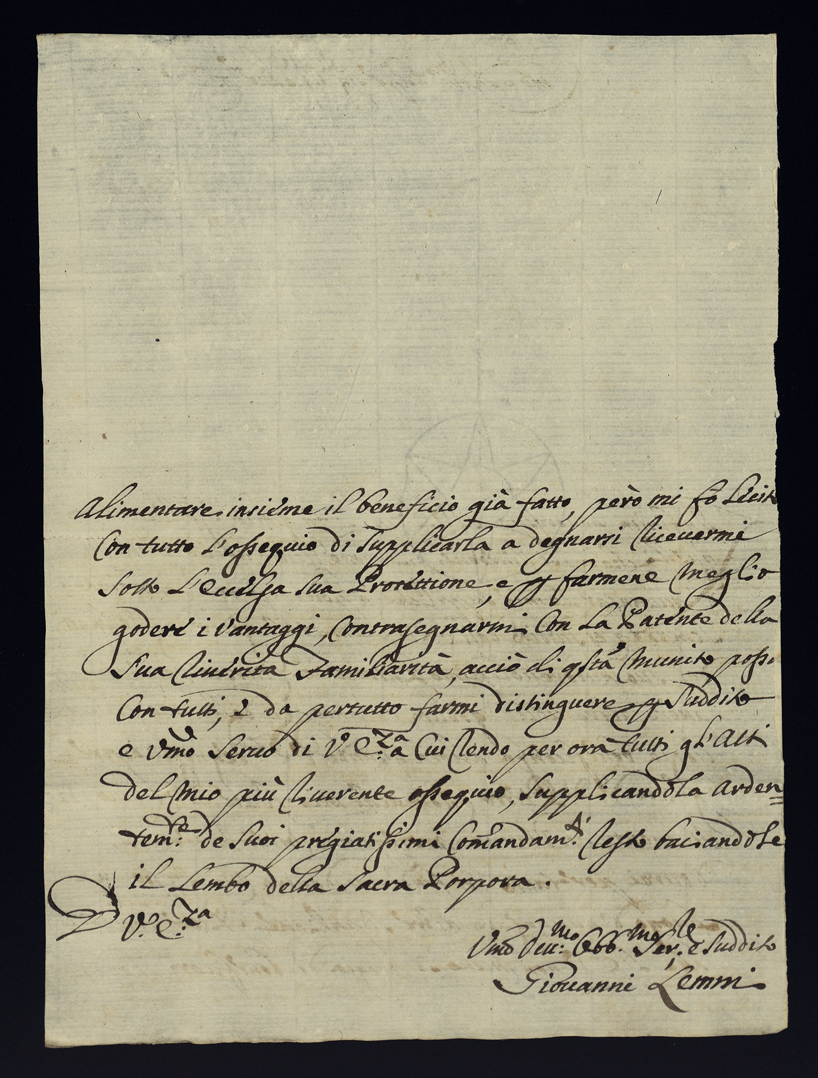 alimentare insiéme il beneficio già fatto, però mi fò lécito
Con tutto l'ossequio di supplicarla a degnarsi riceuermi
sotto l'eccelsa sua Protéttione, e p farmene meglio
goderé i vantaggi, contrasegnarmi con la Paténte della
sua riuérita Familiarità, acciò di qsta munito posso
con tutti, e da pertutto farmi distinguere p suddito
e Vmo Seruo di V. E.za a cui rendo per ora tutti gl'Atti
del mio più riuerente ossequio, supplicandola arden=
tem.te de suoi pregiatissimi Comandam.ti resto baciandole
il Lembo della Sacra Porpora.
D V.E.za
Vmo Deu.mo Obb.mo Ser.le e Suddito
Giouanni Lemmi